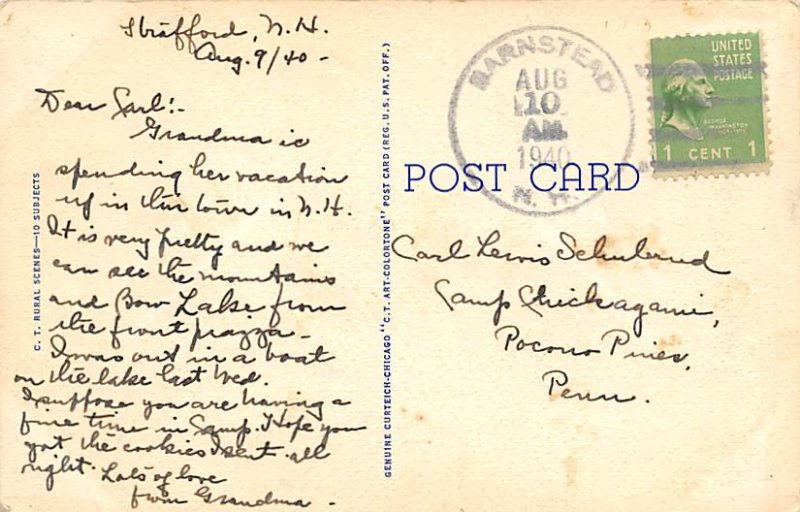 Strafford, N.H.
Aug. 9/40 -
Dear Carl:-
Grandma is
spending her vacation
up in this town in N.H.
It is very pretty and we
can see the mountains
and Bow Lake from
the front piazza -
I was out in a boat
on the lake last Wed.
I suppose you are having a
fine time in Camp. I hope you
got the cookies I sent all
right. Lots of love
from Grandma -
C. T. RURAL SCENES—10 SUBJECTS
GENUINE CURTEICH-CHICAGO "C.T. ART-COLORTONE" POST CARD (REG. U.S. PAT. OFF.)
BARNSTEAD
AUG
10
AM
1940
N. H.
UNITED
STATES
POSTAGE
GEORGE
WASHINGTON
1 CENT 1
POST CARD
Carl Lewis
Camp Chickagami,
Pocono Pines,
Penn.